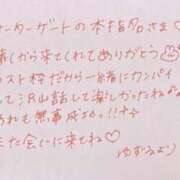 ーターゲートの本指名さま♡
しから来てくれてありがとう
スト枠だから一緒にカンパイ
して沢山話して楽しかったね
も無事成る。!!
た会いに来てね♡
ゆずるより